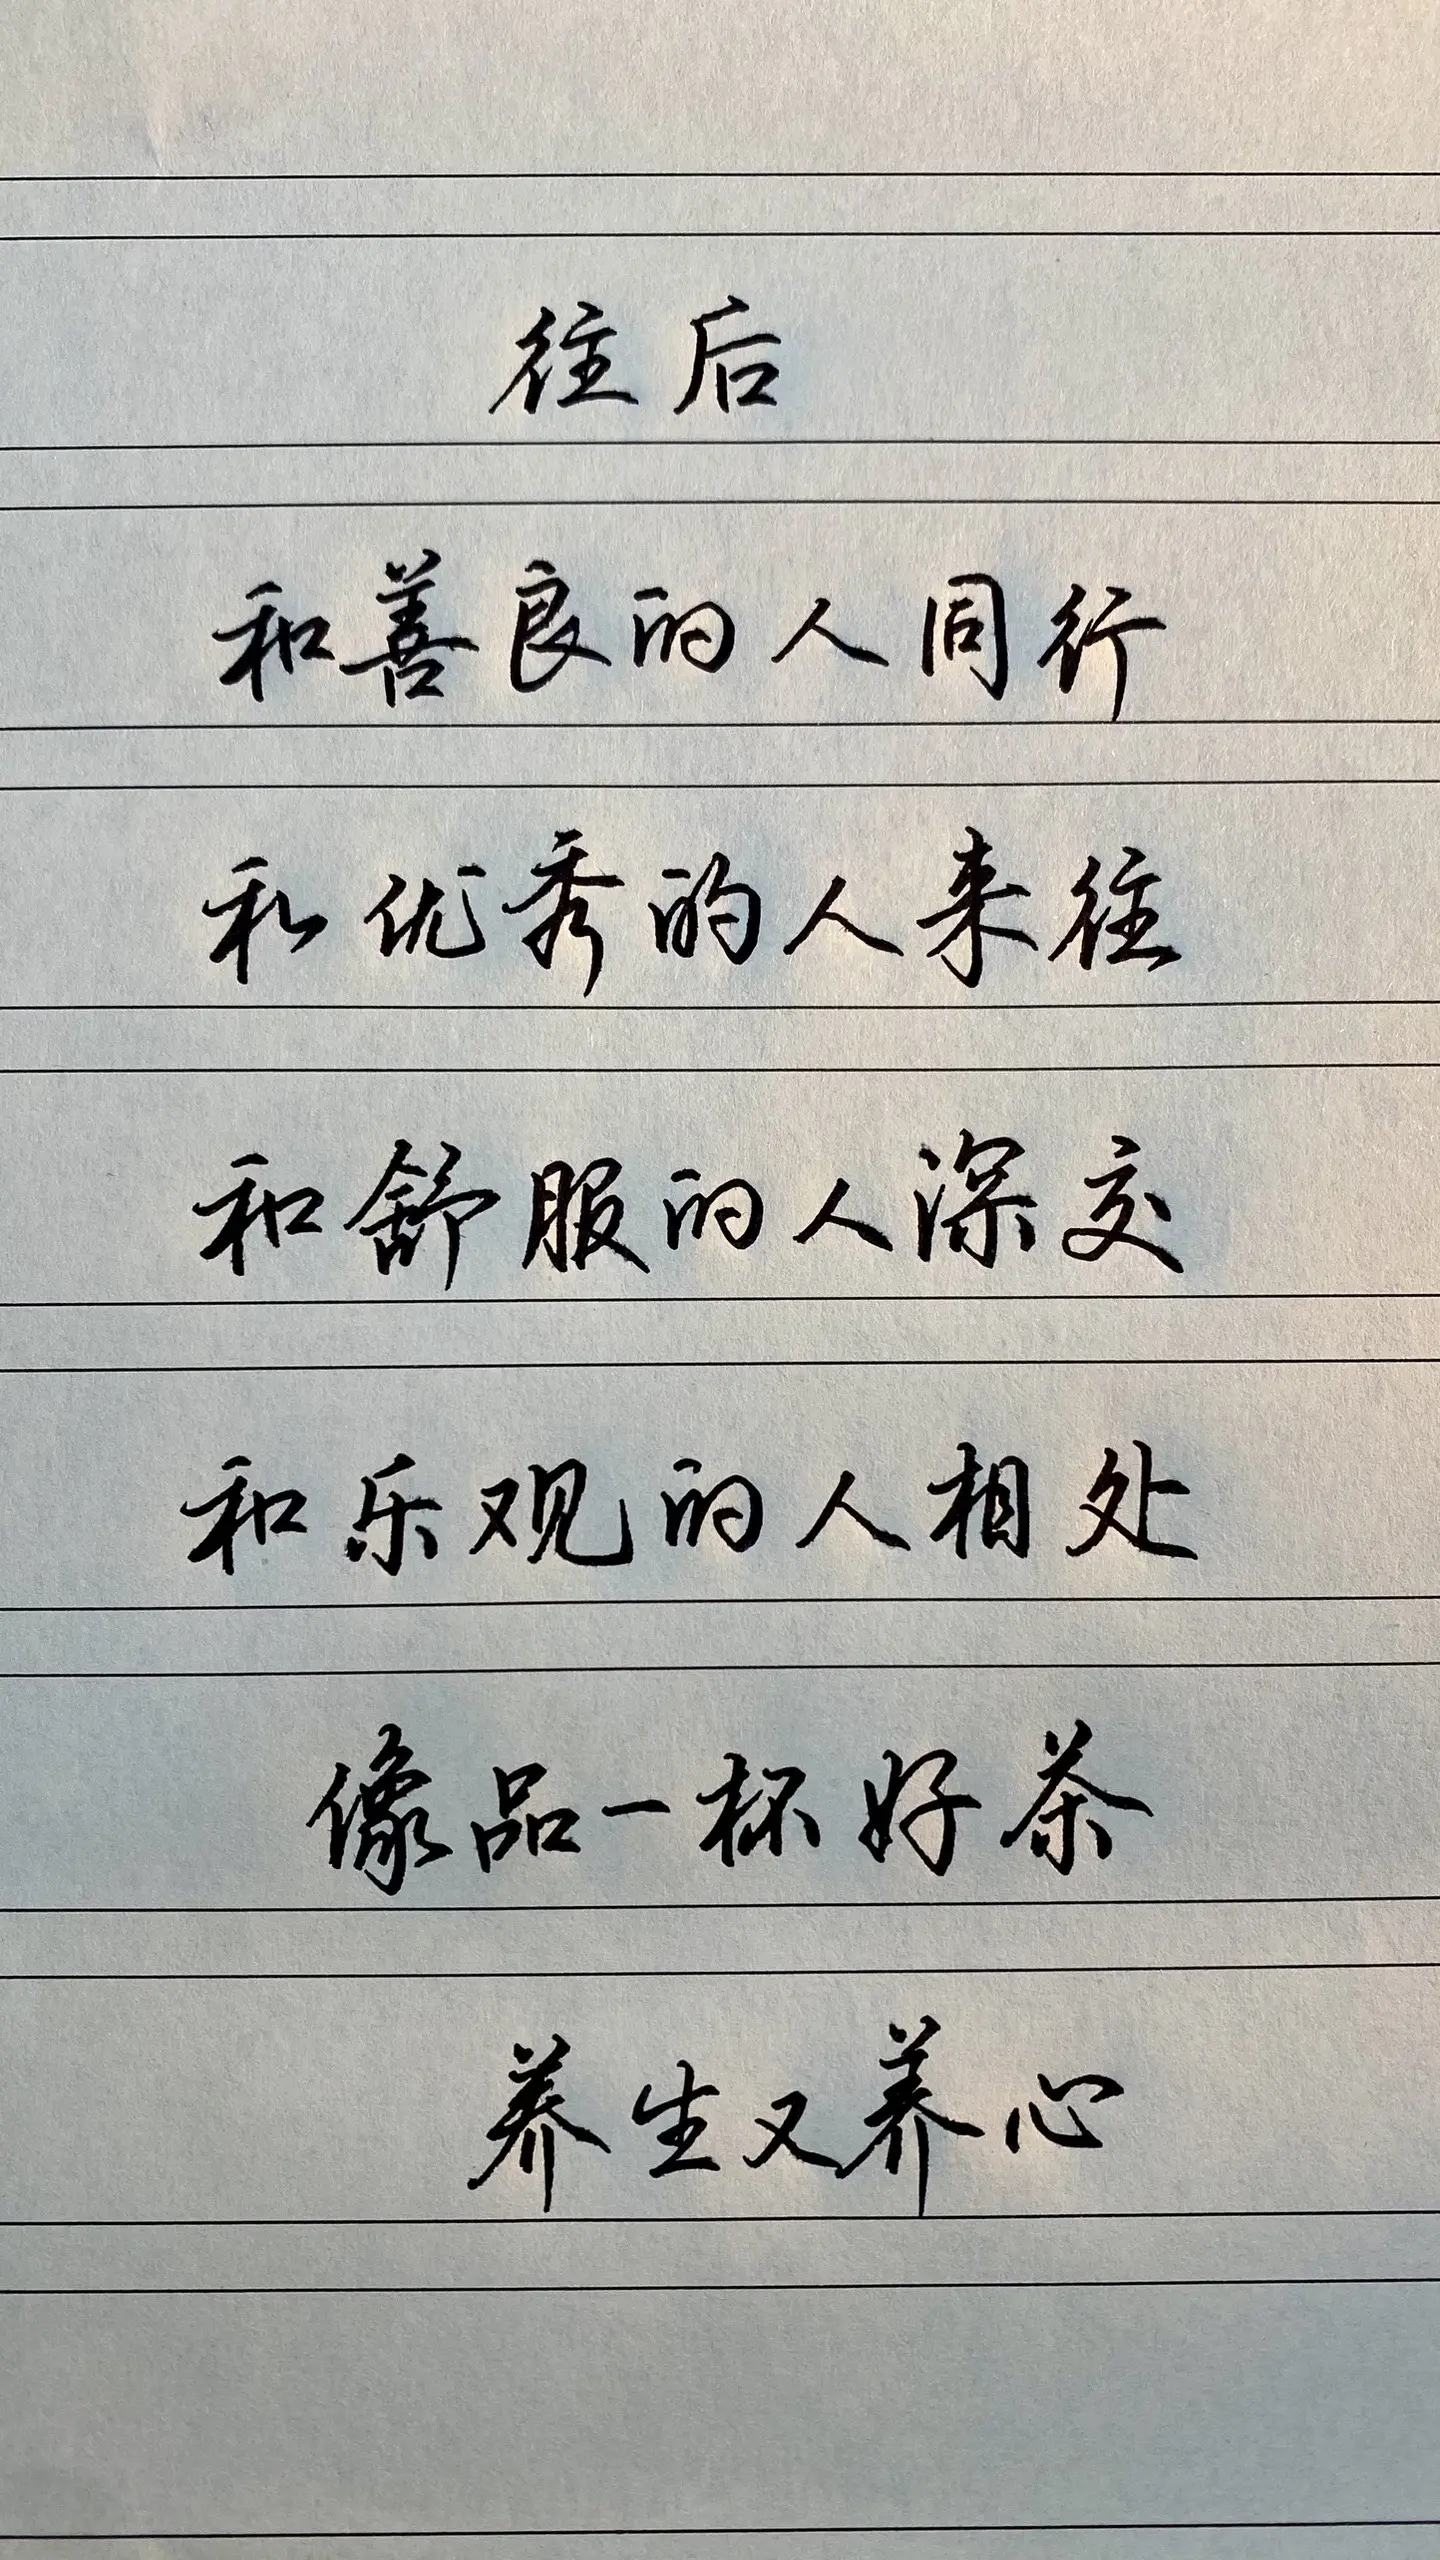 往后
和善良的人同行
和优秀的人来往
和舒服的人深交
和乐观的人相处
像品一杯好茶
养生又养心